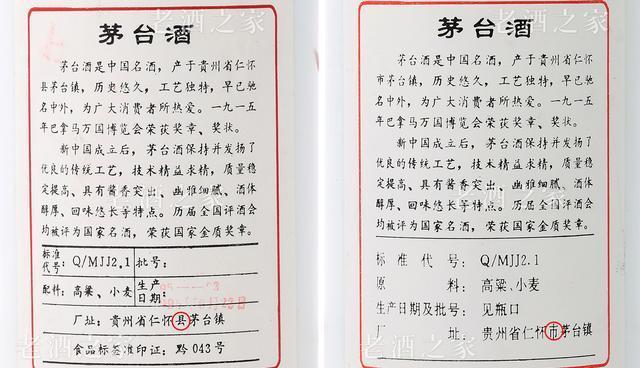 老酒之家
老酒之家
茅台酒
茅台酒是中国名酒，产于贵州省仁怀
县茅台镇，历史悠久，工艺独特，早已驰
名中外，为广大消费者所热爱。一九一五
年巴拿马万国博览会荣获奖章、奖状。
新中国成立后，茅台酒保持并发扬了
优良的传统工艺，技术精益求精，质量稳
定提高、具有酱香突出、幽雅细腻、酒体
醇厚、回味悠长等特点。历届全国评酒会
均被评为国家名酒，荣获国家金质奖章。
标准代号：Q/MJJ2.1 批号：
配料：高粱、小麦 生产日期：
厂址：贵州省仁怀县茅台镇
食品标签准印证：黔043号
老酒之家
茅台酒
茅台酒是中国名酒，产于贵州省仁怀
市茅台镇，历史悠久，工艺独特，早已驰
名中外，为广大消费者所热爱。一九一五
年巴拿马万国博览会荣获奖章、奖状。
新中国成立后，茅台酒保持并发扬了
优良的传统工艺，技术精益求精，质量稳
定提高、具有酱香突出、幽雅细腻、酒体
醇厚、回味悠长等特点。历届全国评酒会
均被评为国家名酒，荣获国家金质奖章。
标准代号：Q/MJJ2.1
原料：高粱、小麦
生产日期及批号：见瓶口
厂址：贵州省仁怀市茅台镇
老酒之家